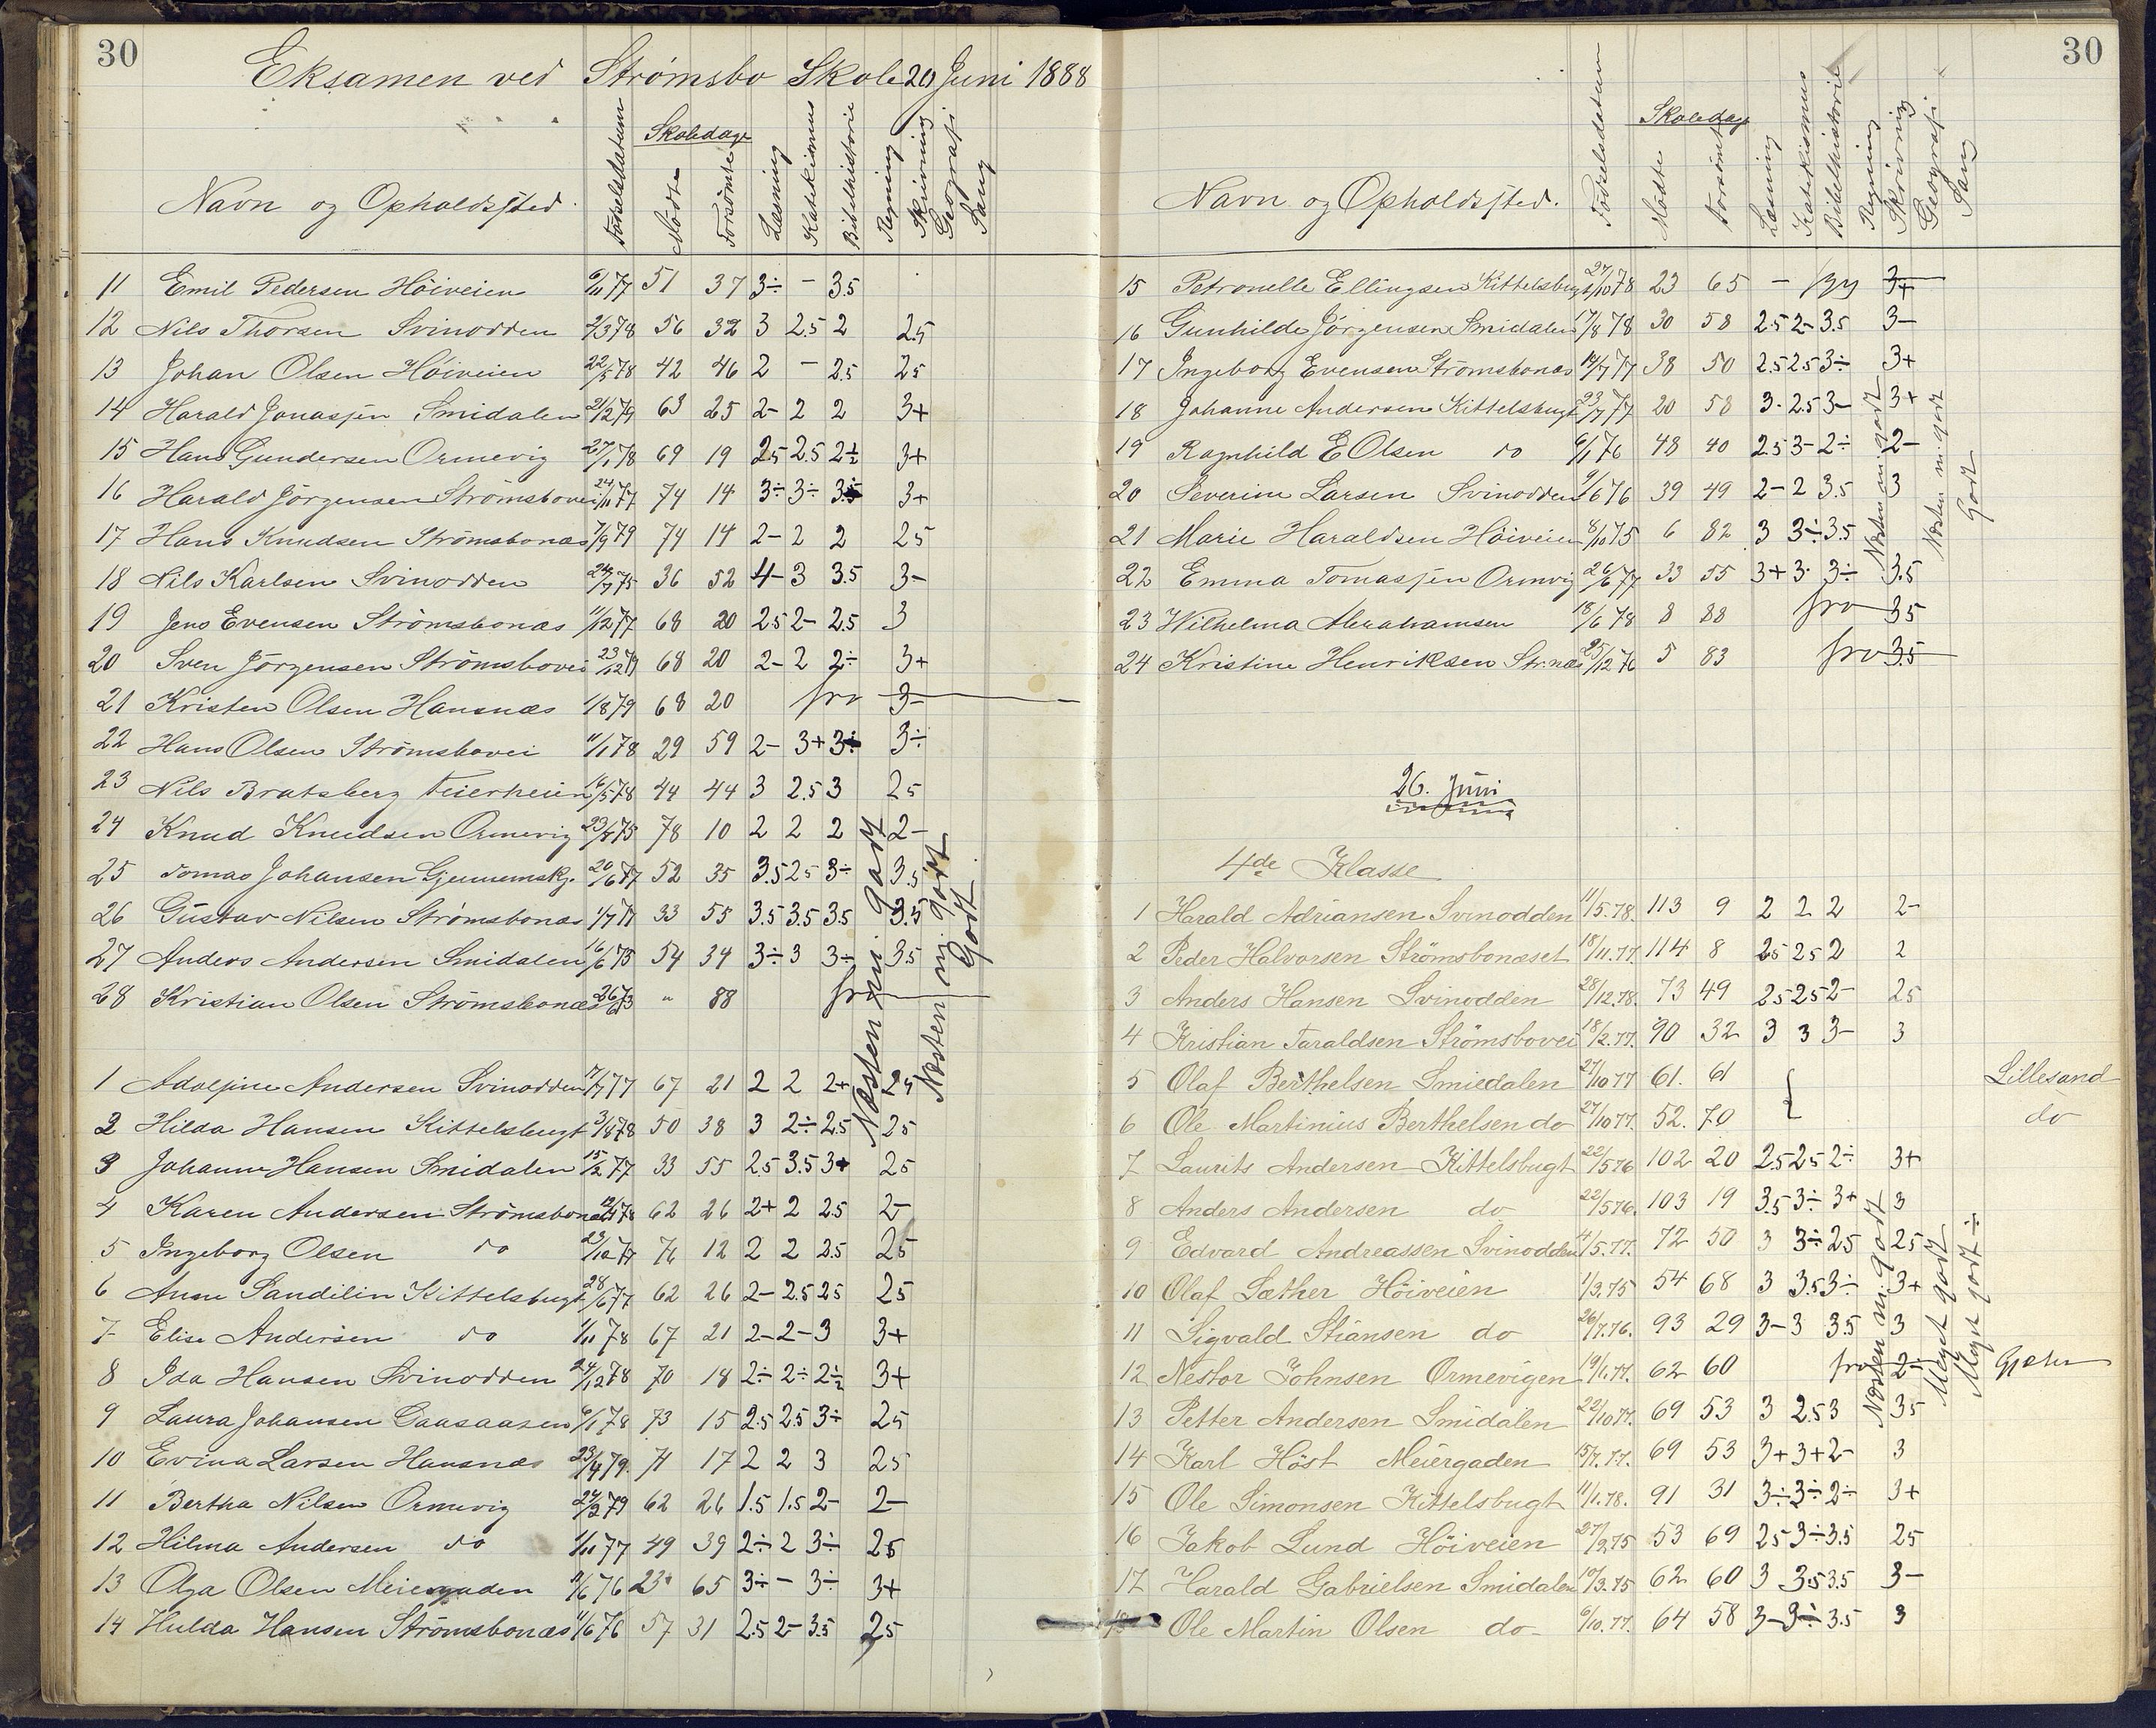 30
Eksamen ved Strømsbo Skole 20 Juni 1888
Skoledage
Navn og Opholdssted. Fødselsdatum Mødte Forsømte Læsning Katekismus Bibelhistorie Regning Skrivning Geografi Sang
11 Emil Pedersen Höiveien 6/11 77 51 37 3÷ - 3.5
12 Nils Thorsen Svinodden 2/3 78 56 32 3 2.5 2 2.5
13 Johan Olsen Höiveien 22/5 78 42 46 2 - 2.5 25
14 Harald Jonassen Smidalen 21/2 79 63 25 2- 2 2 3+
15 Hans Gundersen Ormevig 27/1 78 69 19 2.5 2.5 2÷ 3+
16 Harald Jörgensen Strömsbovei 24/11 77 74 14 3÷ 3÷ 3.5 3+
17 Hans Knudsen Strömsbonæs 7/9 79 74 14 2- 2 2 25
18 Nils Karlsen Svinodden 24/7 75 36 52 4- 3 3.5 3-
19 Jens Evensen Strömsbonæs 11/12 77 68 20 2.5 2- 2.5 3
20 Sven Jörgensen Strömsbovei 23/12 79 68 20 2- 2 2÷ 3+
21 Kristen Olsen Hansnæs 1/8 79 68 20 frv 3-
22 Hans Olsen Strömsbovei 11/1 78 29 59 2- 3+ 3÷ 3÷
23 Nils Bratsberg Feierheien 16/5 78 44 44 3 2.5 3 25
24 Knud Knudsen Ormevig 23/8 75 78 10 2 2 2 2-
25 Tomas Johansen Gjennemskj. 20/6 77 52 35 3.5 25 3÷ 3.5
26 Gustav Nilsen Strömsbonæs 1/7 77 33 55 3.5 3.5 3.5 3.5
27 Anders Andersen Smidalen 16/6 75 54 34 3÷ 3 3÷ 35
28 Kristian Olsen Strömsbonæs 26/6 73 " 88 frv
Næsten m. godt
Næsten m. godt
Godt
1 Adolfine Andersen Svinodden 17/7 77 67 21 2 2 2+ 25
2 Hilda Hansen Kittelsbugt 3/8 78 50 38 3 2÷ 2.5 25
3 Johanne Hansen Smidalen 15/2 77 33 55 2.5 3.5 3+ 25
4 Karen Andersen Strömsbonæs 62 26 2+ 2 25 2-
5 Ingeborg Olsen do 23/10 77 76 12 2 2 2.5 25
6 Anne Sandilin Kittelsbugt 28/6 77 62 26 2- 2.5 25 25
7 Elise Andersen do 1/11 78 67 21 2- 2- 3 3+
8 Ida Hansen Svinodden 24/12 78 70 18 2÷ 2÷ 2÷ 3+
9 Laura Johansen Gaasaasen 6/1 78 73 15 2.5 2.5 3÷ 25
10 Evina Larsen Hansnæs 23/4 79. 71 17 2 2 3 25
11 Bertha Nilsen Ormevig 24/2 79 62 26 1.5 1.5 2- 2-
12 Hilma Andersen do 1/11 77 49 39 2÷ 2 3÷ 25
13 Olga Olsen Meiergaden 11/6 76 23 65 3÷ - 3÷ 3+
14 Hulda Hansen Strömsbonæs 11/6 76 57 31 2.5 2- 3.5 25
30
Skoledage
Navn og Opholdssted. Fødselsdatum Mødte Forsømte Læsning Katekismus Bibelhistorie Regning Skrivning Geografi Sang
15 Petronelle Ellingsen Kittelsbugt 27/10 78 23 65 - 3+
16 Gunhilde Jörgensen Smidalen 17/8 78 30 58 2.5 2- 3.5 3-
17 Ingeborg Evensen Strömsbonæs 14/7 77 38 50 2.5 2.5 3÷ 3+
18 Johanne Andersen Kittelsbugt 23/7 77 20 58 3- 2.5 3- 3+
19 Ragnhild E Olsen do 6/1 76 48 40 25 3- 2÷ 2-
20 Severine Larsen Svinodden 9/6 76 39 49 2- 2 3.5 3
21 Marie Haraldsen Höiveien 8/10 75 6 82 3 3÷ 3.5
22 Emma Tomassen Ormvig 26/6 77 33 55 3+ 3 3÷ 3.5
23 Wilhelma Abrahamsen 18/6 78 8 88 frv 35
24 Kristine Henriksen Str.næs 25/12 76 5 83 frv 3.5
Næsten m. godt
Næsten m. godt
Godt
26. Juni
4de Klasse
1 Harald Adriansen Svinodden 11/5.78. 113 9 2 2 2 2-
2 Peder Halvorsen Strömsbonæset 18/11.77. 114 8 25 25 2 2
3 Anders Hansen Svinodden 28/12.78. 73 49 25 25 2- 25
4 Kristian Taraldsen Strömsbovei 18/2.77. 90 32 3 3 3- 3
5 Olaf Berthelsen Smiedalen 27/10 77 61. 61 Lillesand
6 Ole Martinius Berthelsen do 27/10 77. 52. 70 do
7 Laurits Andersen Kittelsbugt 22/5 76 102 20 2.5 25 2÷ 3+
8 Anders Andersen do 22/5 76. 103 19 3.5 3÷ 3+ 3
9 Edvard Andreassen Svinodden 4/5.77. 72 50 3 3÷ 25 25
10 Olaf Sæther Höiveien 1/3.75 54 68 3 3.5 3÷ 3+
11 Sigvald Stiansen do 26/7.76. 93 29 3- 3 35 3
12 Nestor Johnsen Ormevigen 19/1.77. 62 60 frv 2÷
13 Petter Andersen Smidalen 22/10 77. 69 53 3 2.5 3 35
14 Karl Höst Meiergaden 15/7.77. 69 53 3+ 3+ 2- 3
15 Ole Simonsen Kittelsbugt 11/1.78. 91 31 3÷ 3÷ 2÷ 3+
16 Jakob Lund Höiveien 27/2 75 53 69 25 3÷ 3.5 25
17 Harald Gabrielsen Smidalen 10/3.75 62 60 3 3.5 3.5 3-
18 Ole Martin Olsen do 6/10.77. 64 58 3- 3÷ 3.5 3
Næsten m. godt
Meget godt
Meget godt ÷